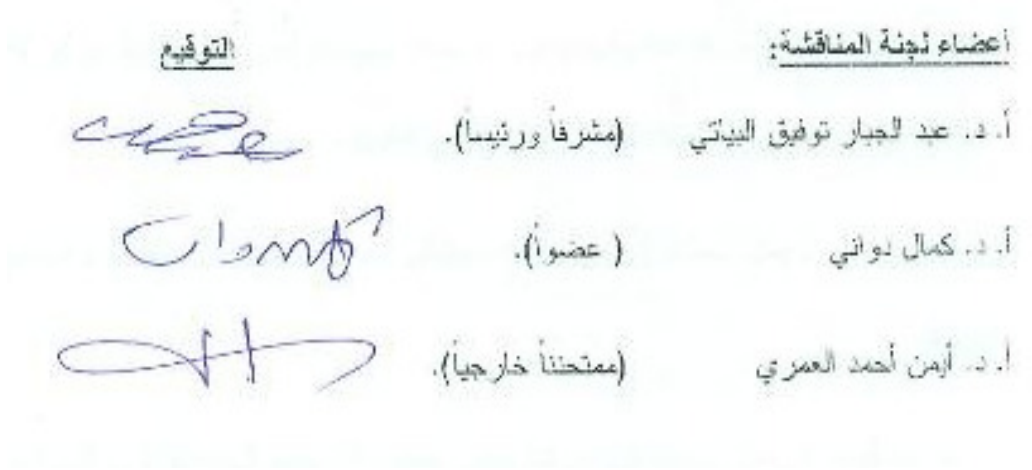 أعضاء لجنة المناقشة: التوقيع
أ. د. عبد الجبار توفيق البياتي (مشرفاً ورئيساً).
أ. د. كمال دواني ( عضواً).
أ. د. أيمن أحمد العمري (ممتحناً خارجياً).